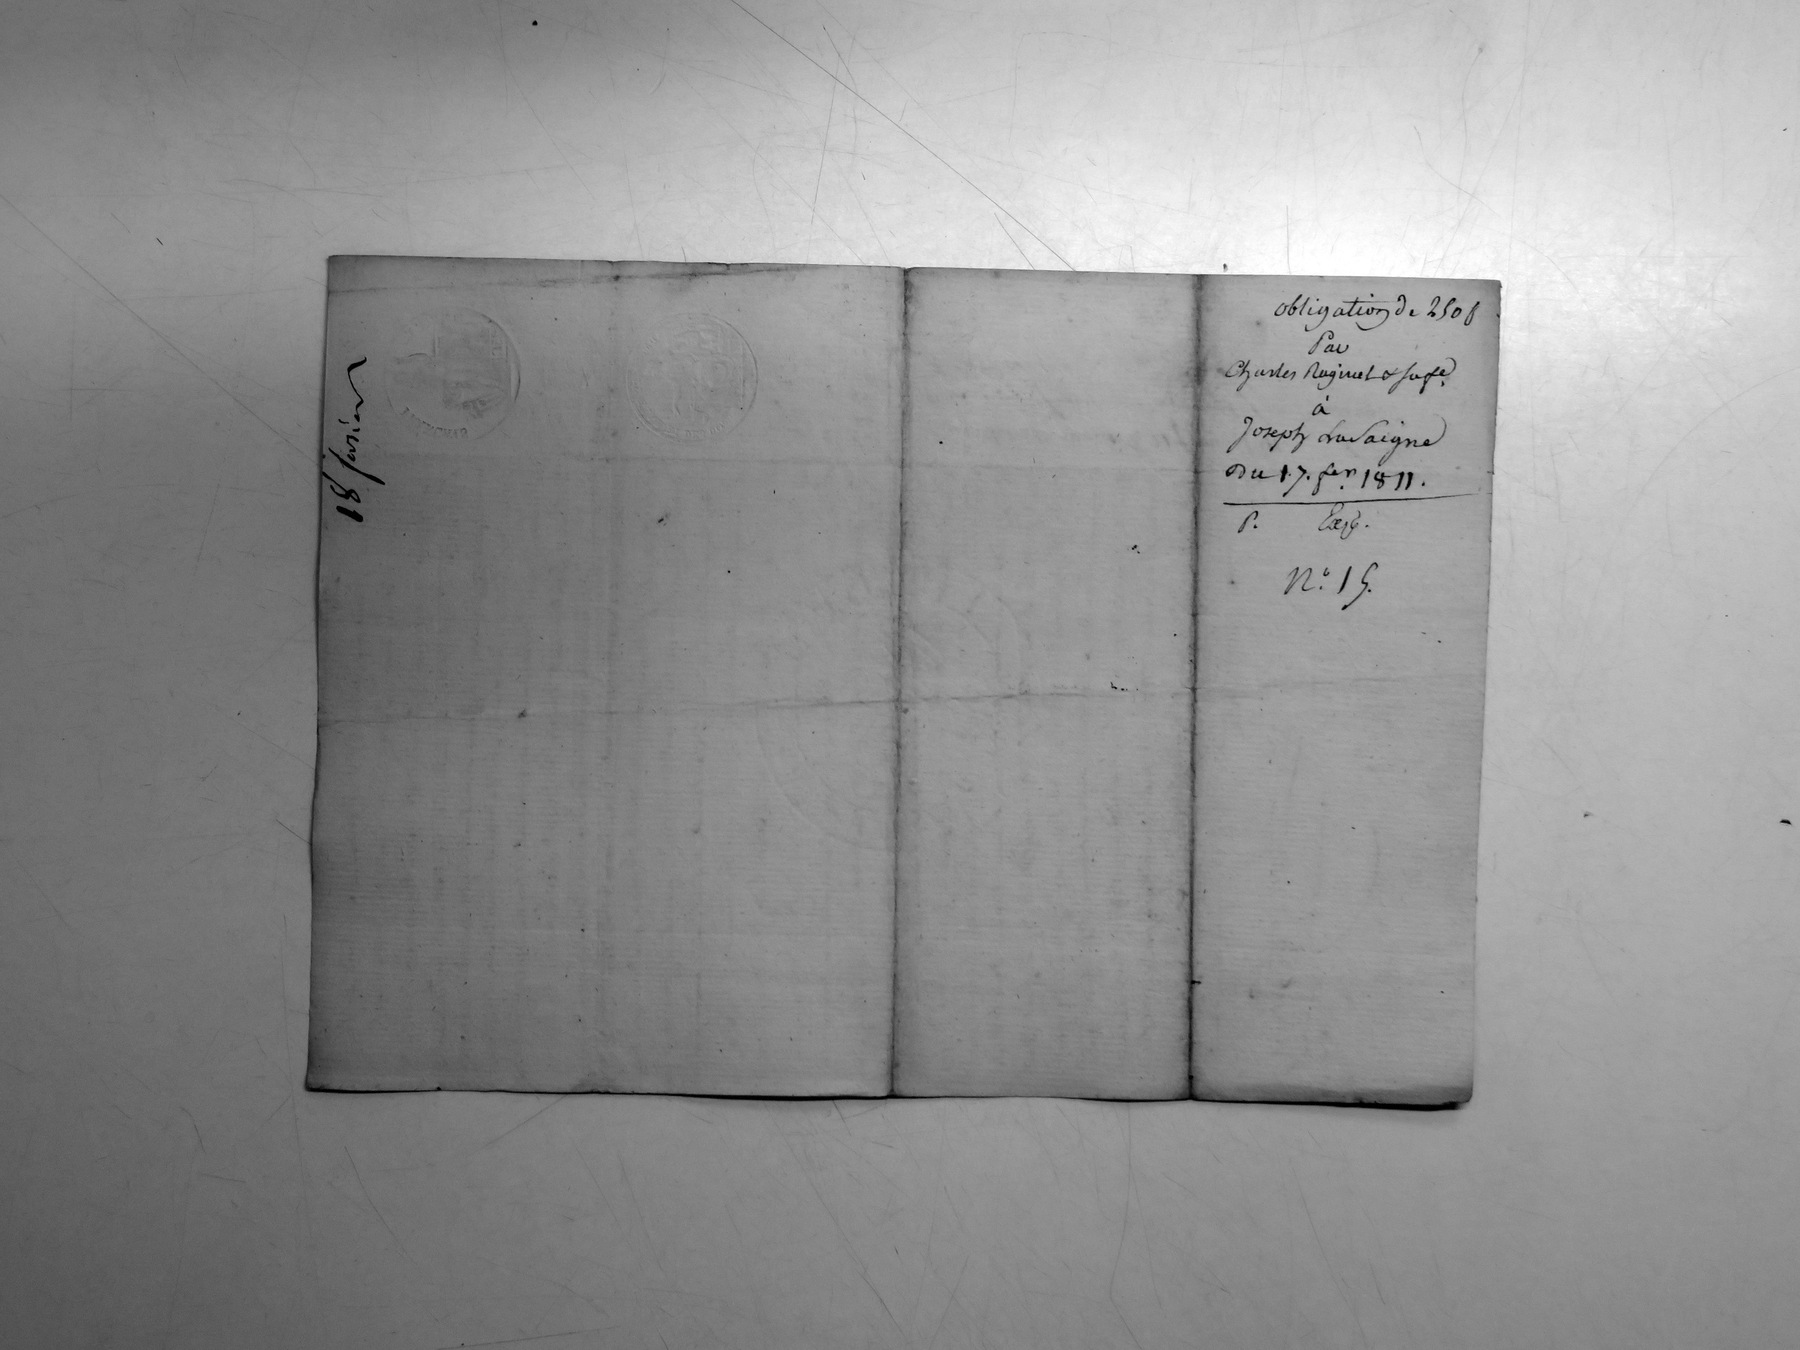 18 février
obligation de 250 f
Par
Charles Ruginet & sa fe
à
Joseph Lavaigne
Du 17. fer. 1811.
P. Exp.
N.o 15.